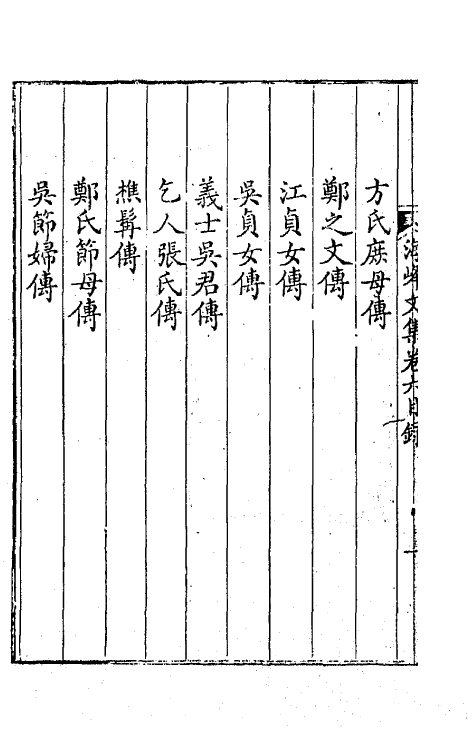 方氏庶母傳
鄭之文傳
江貞女傳
吳貞女傳
義士吳君傳
乞人張氏傳
樵髯傳
鄭氏節母傳
吳節婦傳
海峰文集卷六目錄